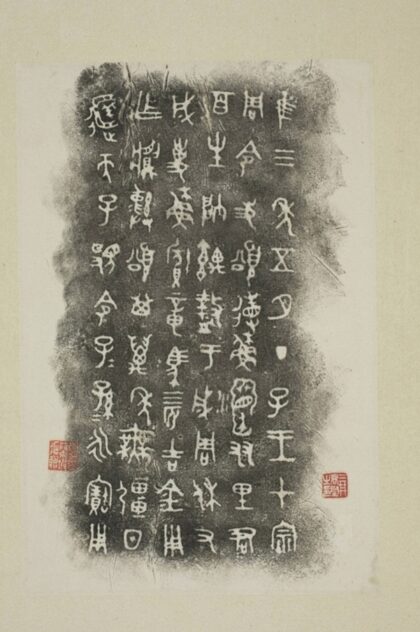 隹三年五月丁子王才宗
周令史頌省蘇友里君
百生帥盩于成周休又
成事蘇賓章馬四匹吉金用
乍䵼彝頌其萬年無疆日
天子顯令子孫永寶用